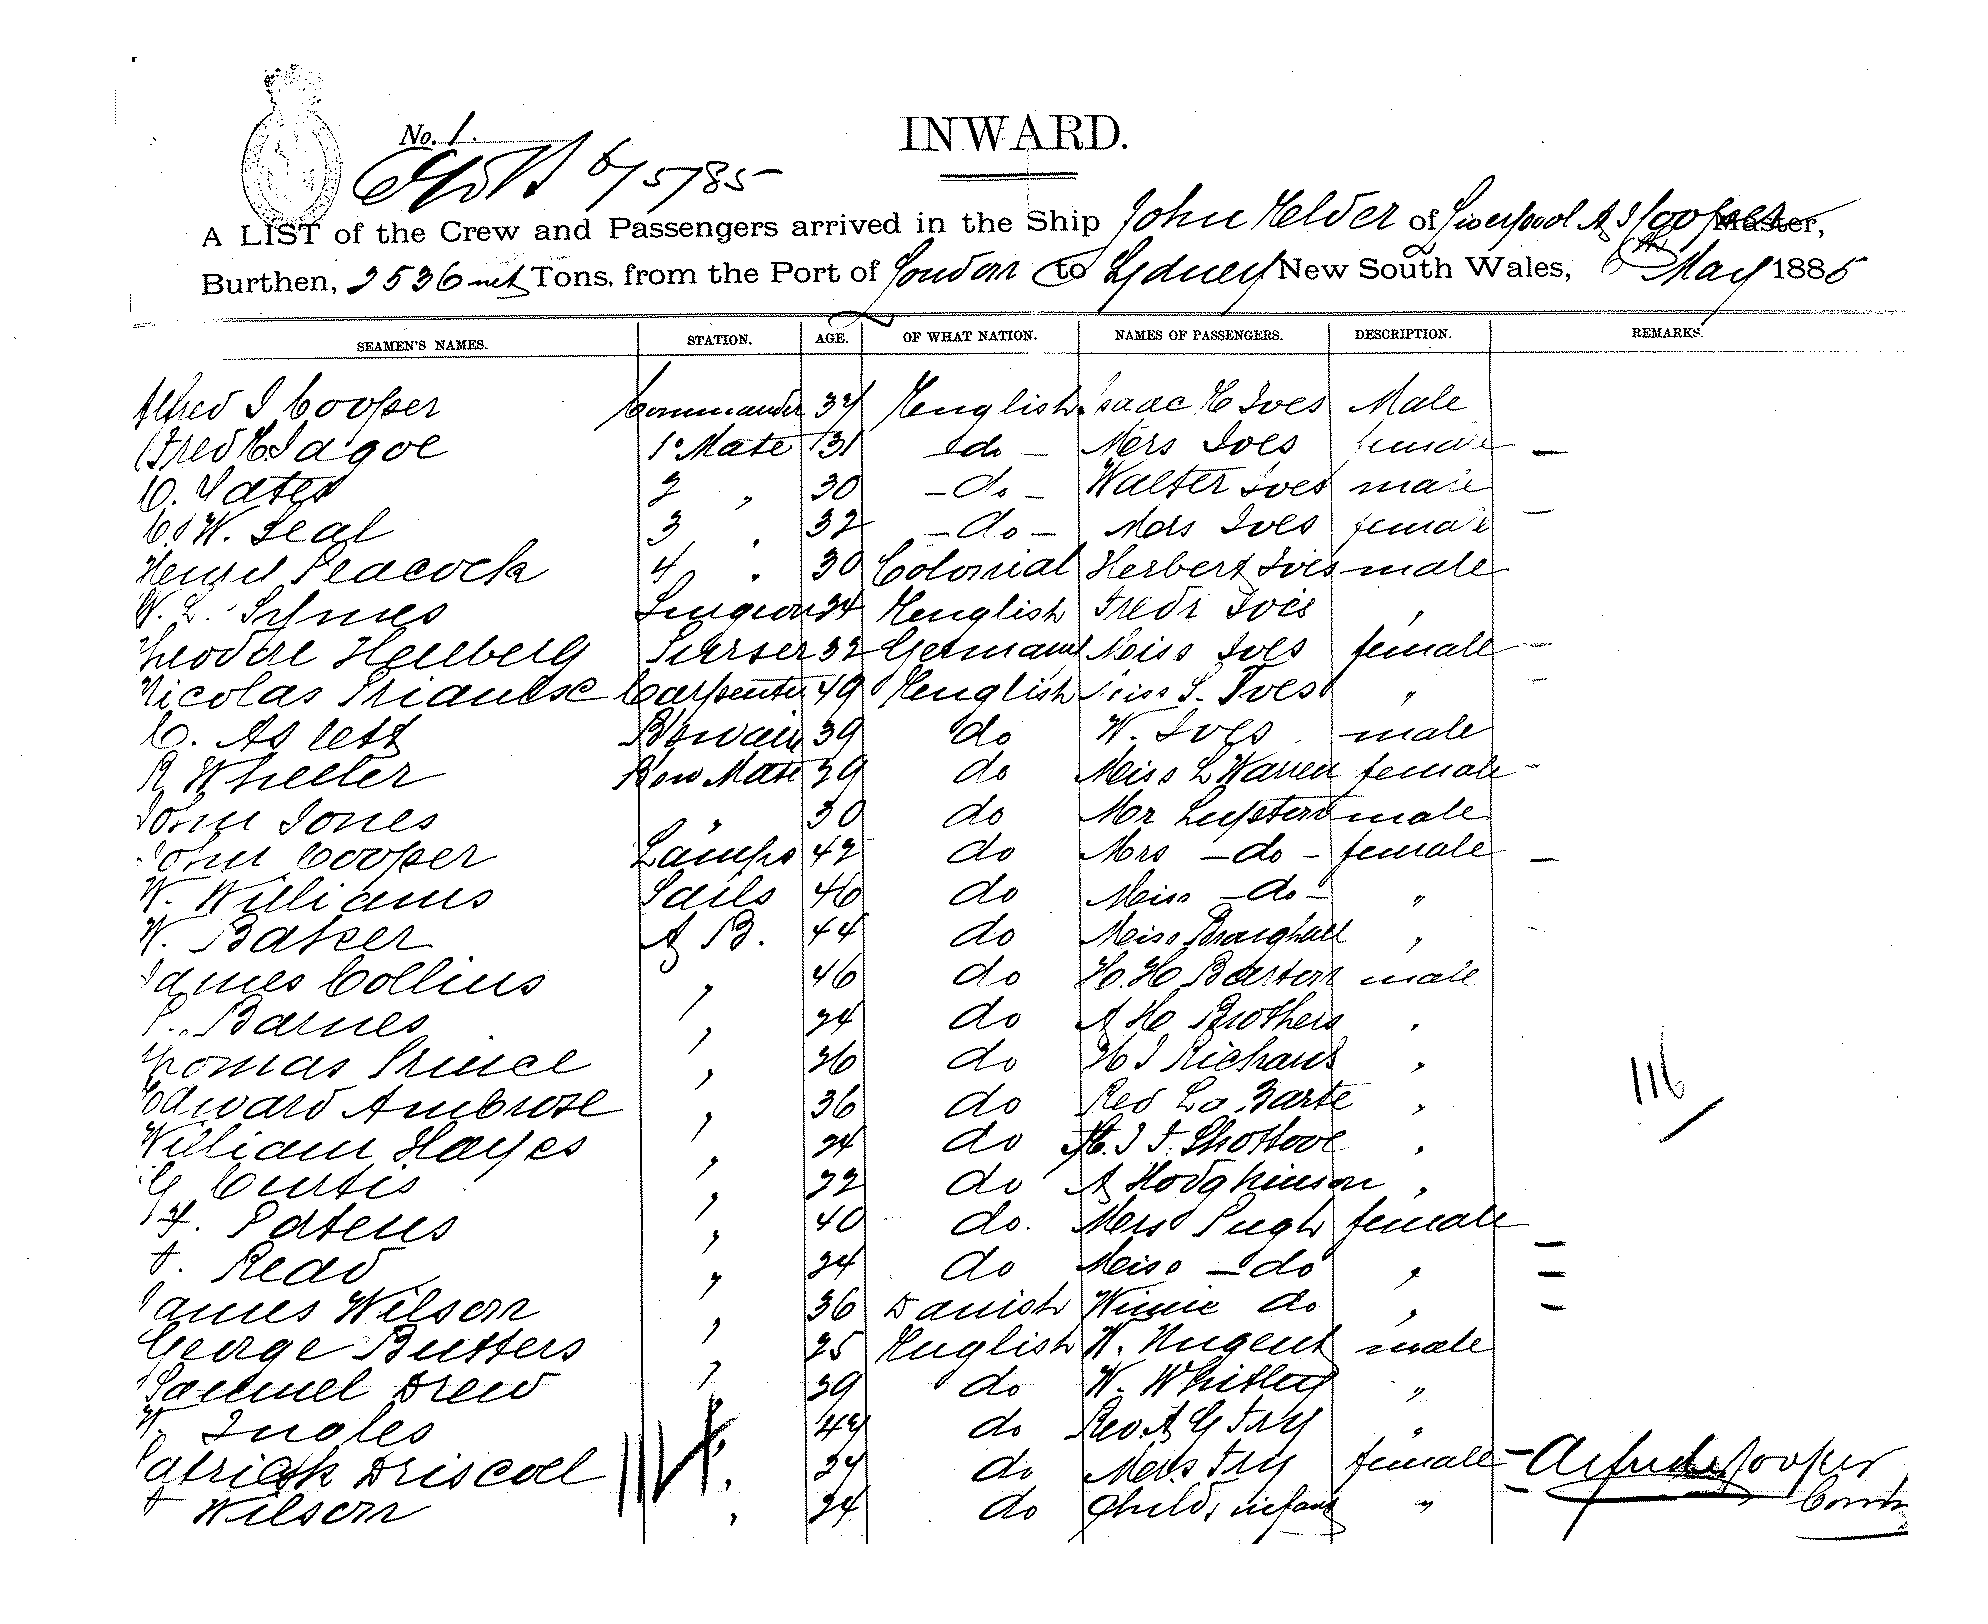 No. 1.
INWARD.
6/5/85
A LIST of the Crew and Passengers arrived in the Ship John Elder of Liverpool A J Cooper Master,
Burthen, 2536 net Tons, from the Port of London to Sydney New South Wales, 6th May 1885
SEAMEN'S NAMES. STATION. AGE. OF WHAT NATION. NAMES OF PASSENGERS. DESCRIPTION. REMARKS.
Alfred J Cooper Commander 37 English Isaac H Ives Male
Fred H Jagoe 1o Mate 31 do Mrs Ives female
C. Yates 2 " 30 do Walter Ives male
W. Seal 3 " 32 do Mrs Ives female
Peacock 4 " 30 Colonial Herbert Ives male
W. L. Symes Surgeon 24 English Fredk Ives "
Theodore Heilberg Purser 32 German Miss Ives female
Nicolas Carpenter 49 English Miss S. Ives "
C. Aslett Bswain 39 do W. Ives male
R Wheeler Bsn Mate 39 do Miss L Warren female
John Jones " 30 do Mr Lupton male
John Cooper Lamps 42 do Mrs do female
W. Williams Sails 46 do Miss do "
W. Baker A B. 44 do Miss "
James Collins " 46 do H. H Barton male
P. Barnes " 24 do A H Brothers "
Thomas Prince " 26 do H J Richards "
Edward Ambrose " 36 do Rev La Barte "
William Hayes " 24 do "
G Curtis " 22 do A Hodghinson "
" 40 do. Mrs Pugh female
F. Read " 24 do Miss do "
James Wilson " 36 Danish Winnie do "
George Butters " 25 English W. Nugent male
Samuel Drew " 39 do W. Whitley "
W. Ingles " 47 do Rev A G Fry "
Patrick Driscoll " 27 do Mrs Fry female
F Wilson " 24 do Child, infant "
116
Alfred J Cooper
Comdr